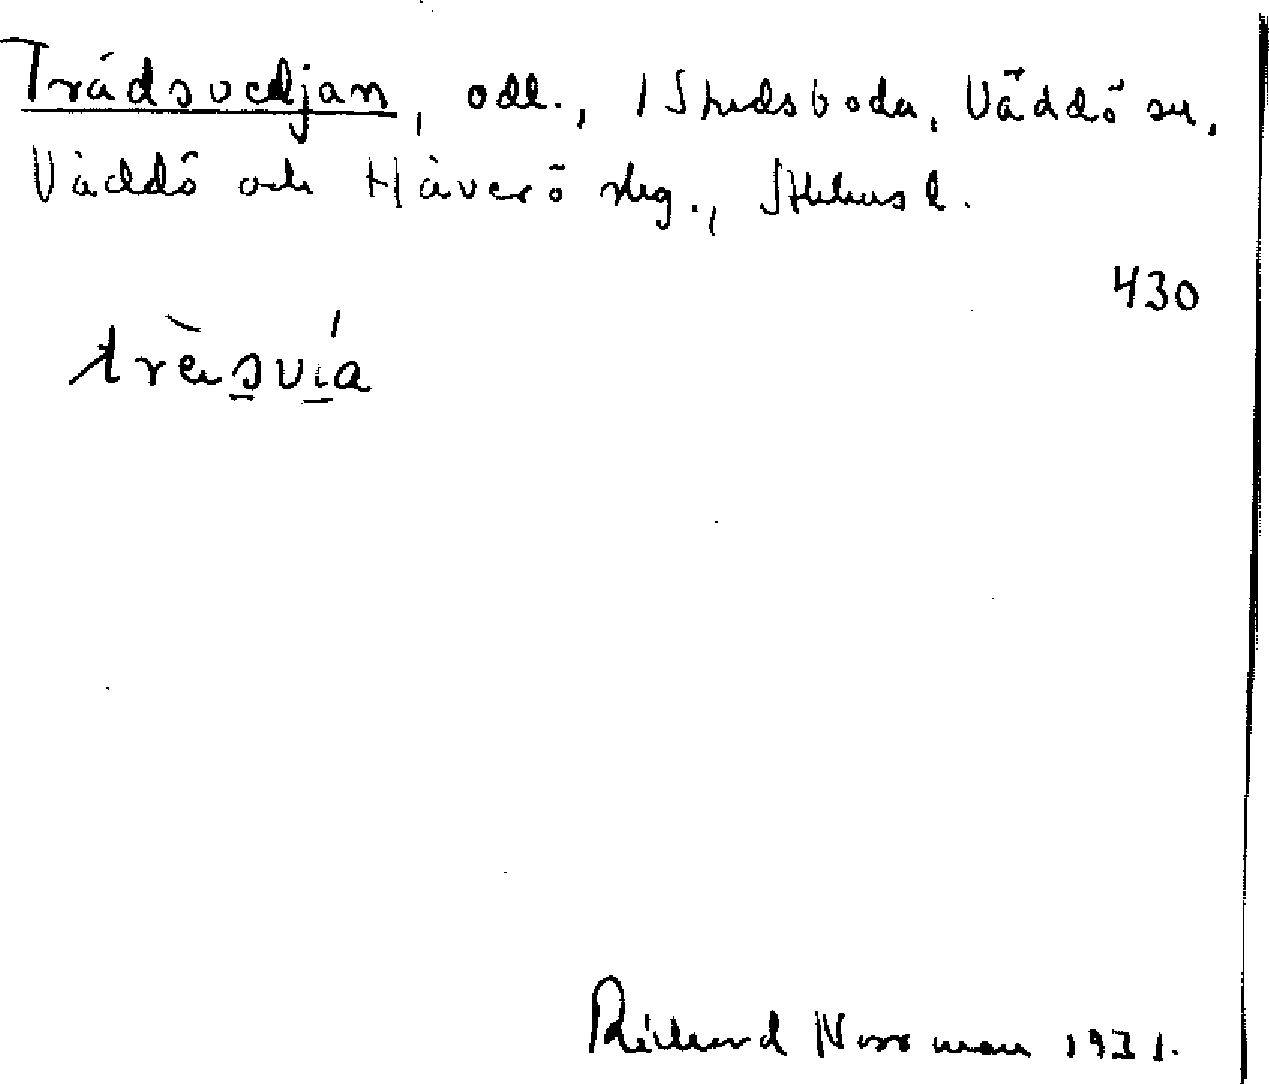 Trädsvedjan, odl., 1 Skedsboda, Väddö sn,
Väddö och Häverö skg., Sthlms l.
430
Richard Norrman 1931.